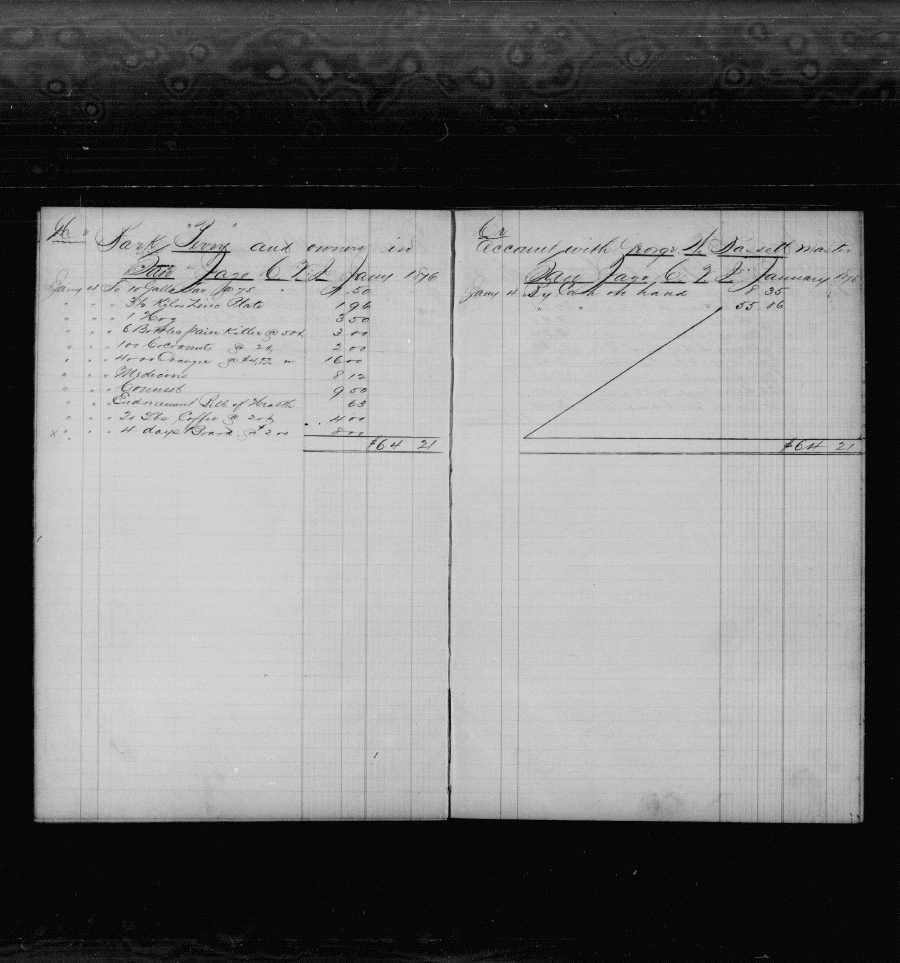 Dr
Bark "Perry" and owners in
Porto Jago C. V. I. Jany 1876
Jany 4 To 10 Galls Tar @ 75 7.50
" " " 3/6 Zinc Plate 1 96
" " " 1 Hog 3 50
" " " 6 Bottles pain Killer @ 50¢ 3 00
" " " 100 Cocoanuts @ 2¢ 2 00
" " " 4000 Oranges @ $4.00 m 16 00
" " " Medicine 8 12
" " " Counsel 9 50
" " " Endorsement Bill of Health 63
" " " 20 Lbs Coffee @ 20¢ 4 00
" " " 4 days Board @ $2 00 8 00
$64 21
Cr
Account with George H. Bassett master
Porto Jago C. V. I. January 1876
Jany 4 By Cash on hand 8 35
" " 55 86
$64 21